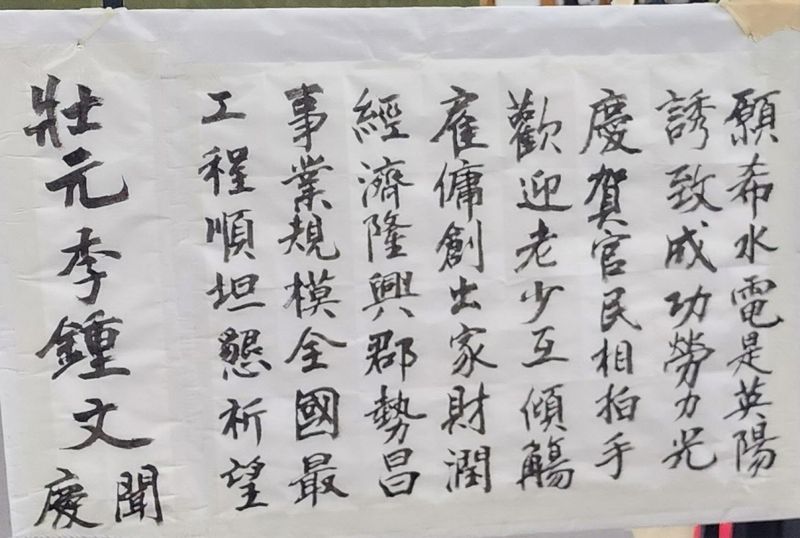 願希水電是英陽
誘致成功勞力光
慶賀官民相拍手
歡迎老少互傾觴
雇傭創出家財潤
經濟隆興郡勢昌
事業規模全國最
工程順坦懇祈望
壯元李鍾文
聞慶